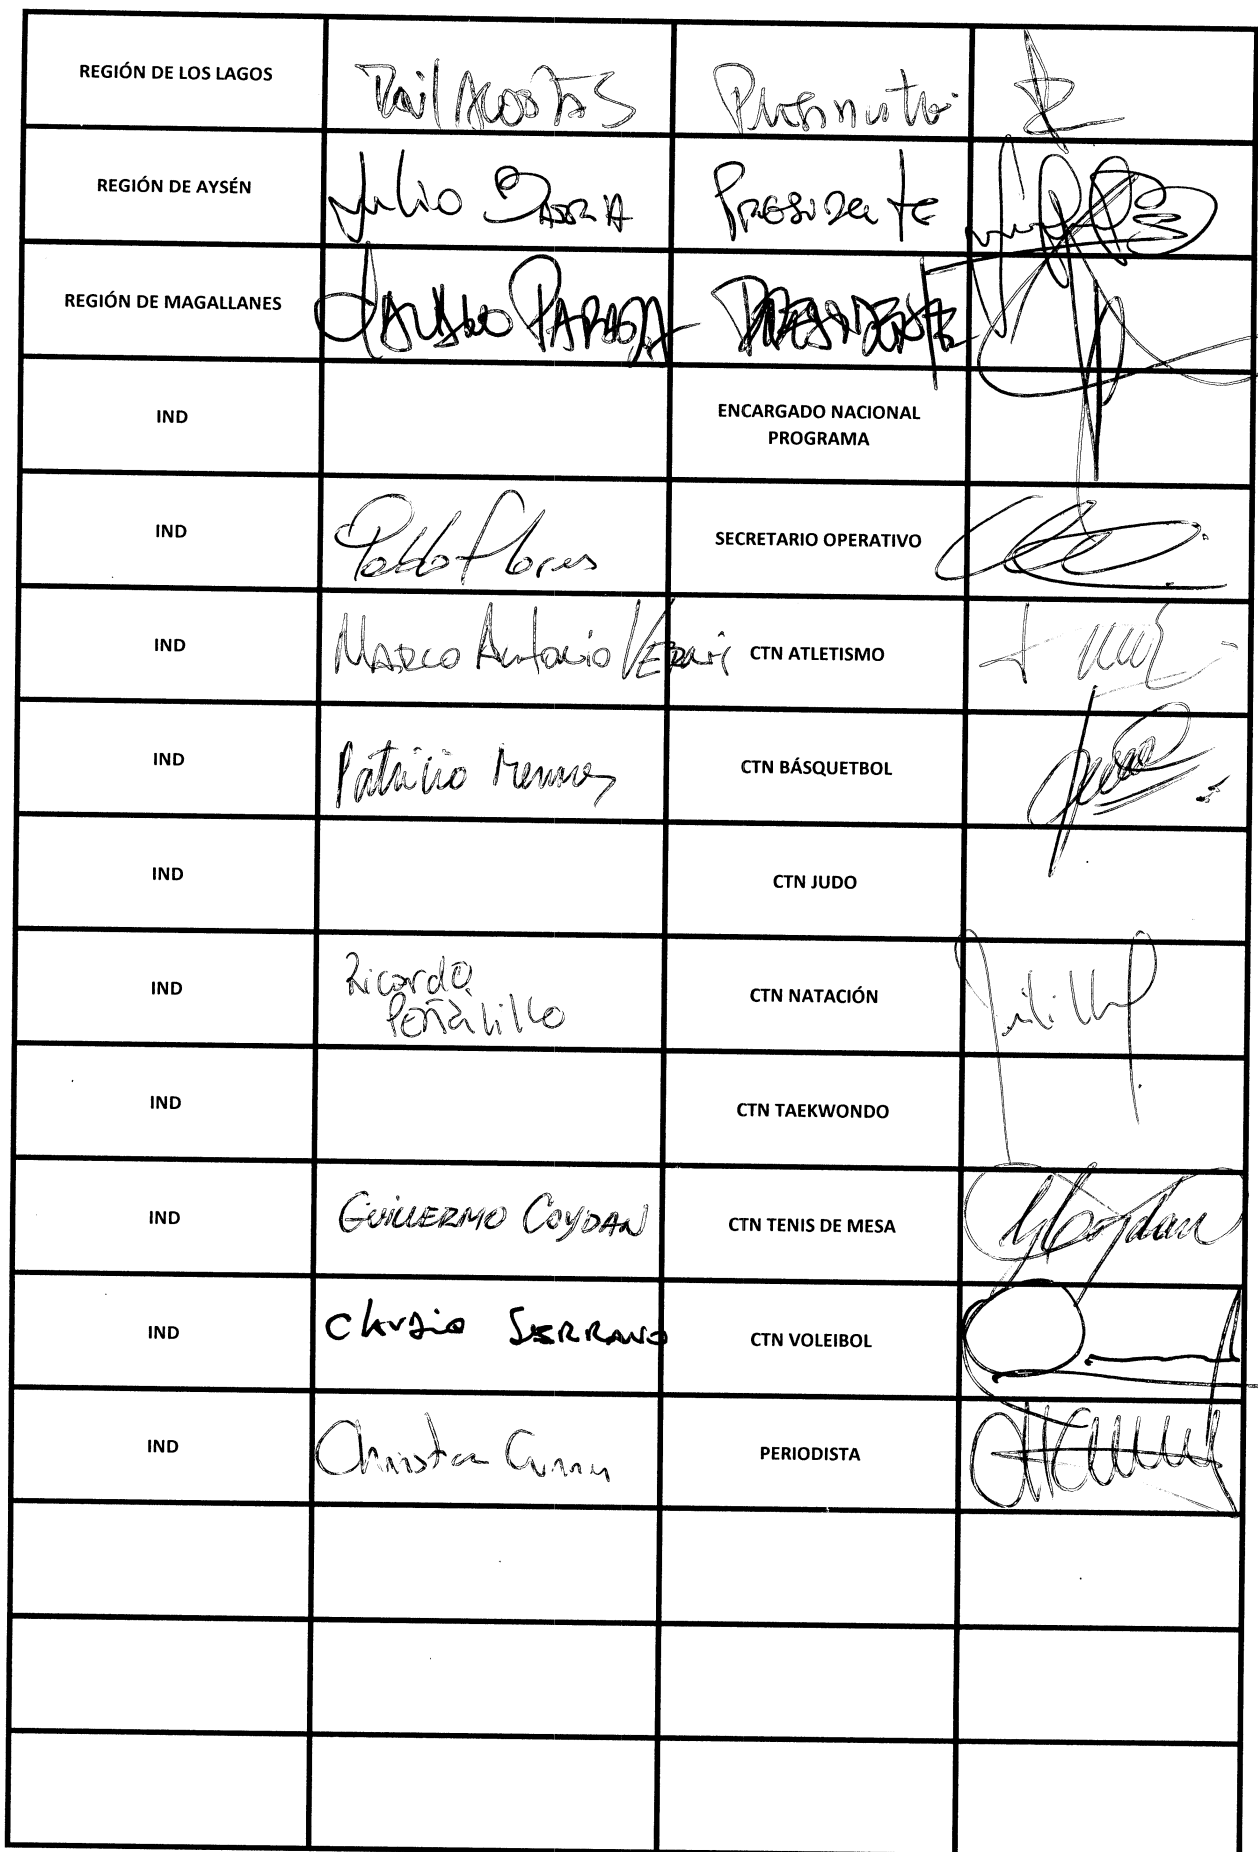 REGIÓN DE LOS LAGOS Acostas
REGIÓN DE AYSÉN Julio Barria Presidente
REGIÓN DE MAGALLANES PRESIDENTE
IND ENCARGADO NACIONAL
PROGRAMA
IND Pablo Flores SECRETARIO OPERATIVO
IND Marco Antonio CTN ATLETISMO
IND Patricio CTN BÁSQUETBOL
IND CTN JUDO
IND Ricardo CTN NATACIÓN
Peñalillo
IND CTN TAEKWONDO
IND GUILLERMO COYDAN CTN TENIS DE MESA
IND Claudio SERRANO CTN VOLEIBOL
IND PERIODISTA